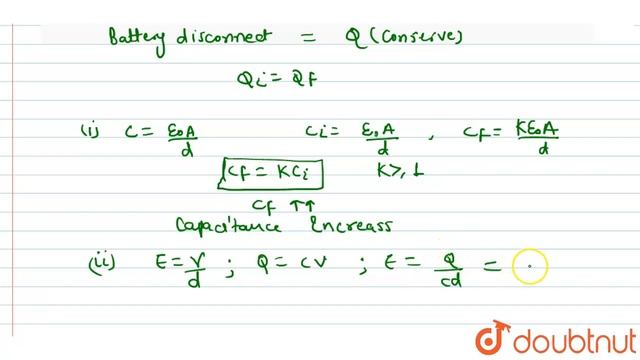 Battery disconnect = Q (Conserve)
Qi = Qf
(i) C = ε₀A/d Ci = ε₀A/d , Cf = Kε₀A/d
Cf = KCi K>, 1
Cf ↑↑
Capacitance Increass
(ii) E = V/d ; Q = CV ; E = Q/cd =
doubtnut